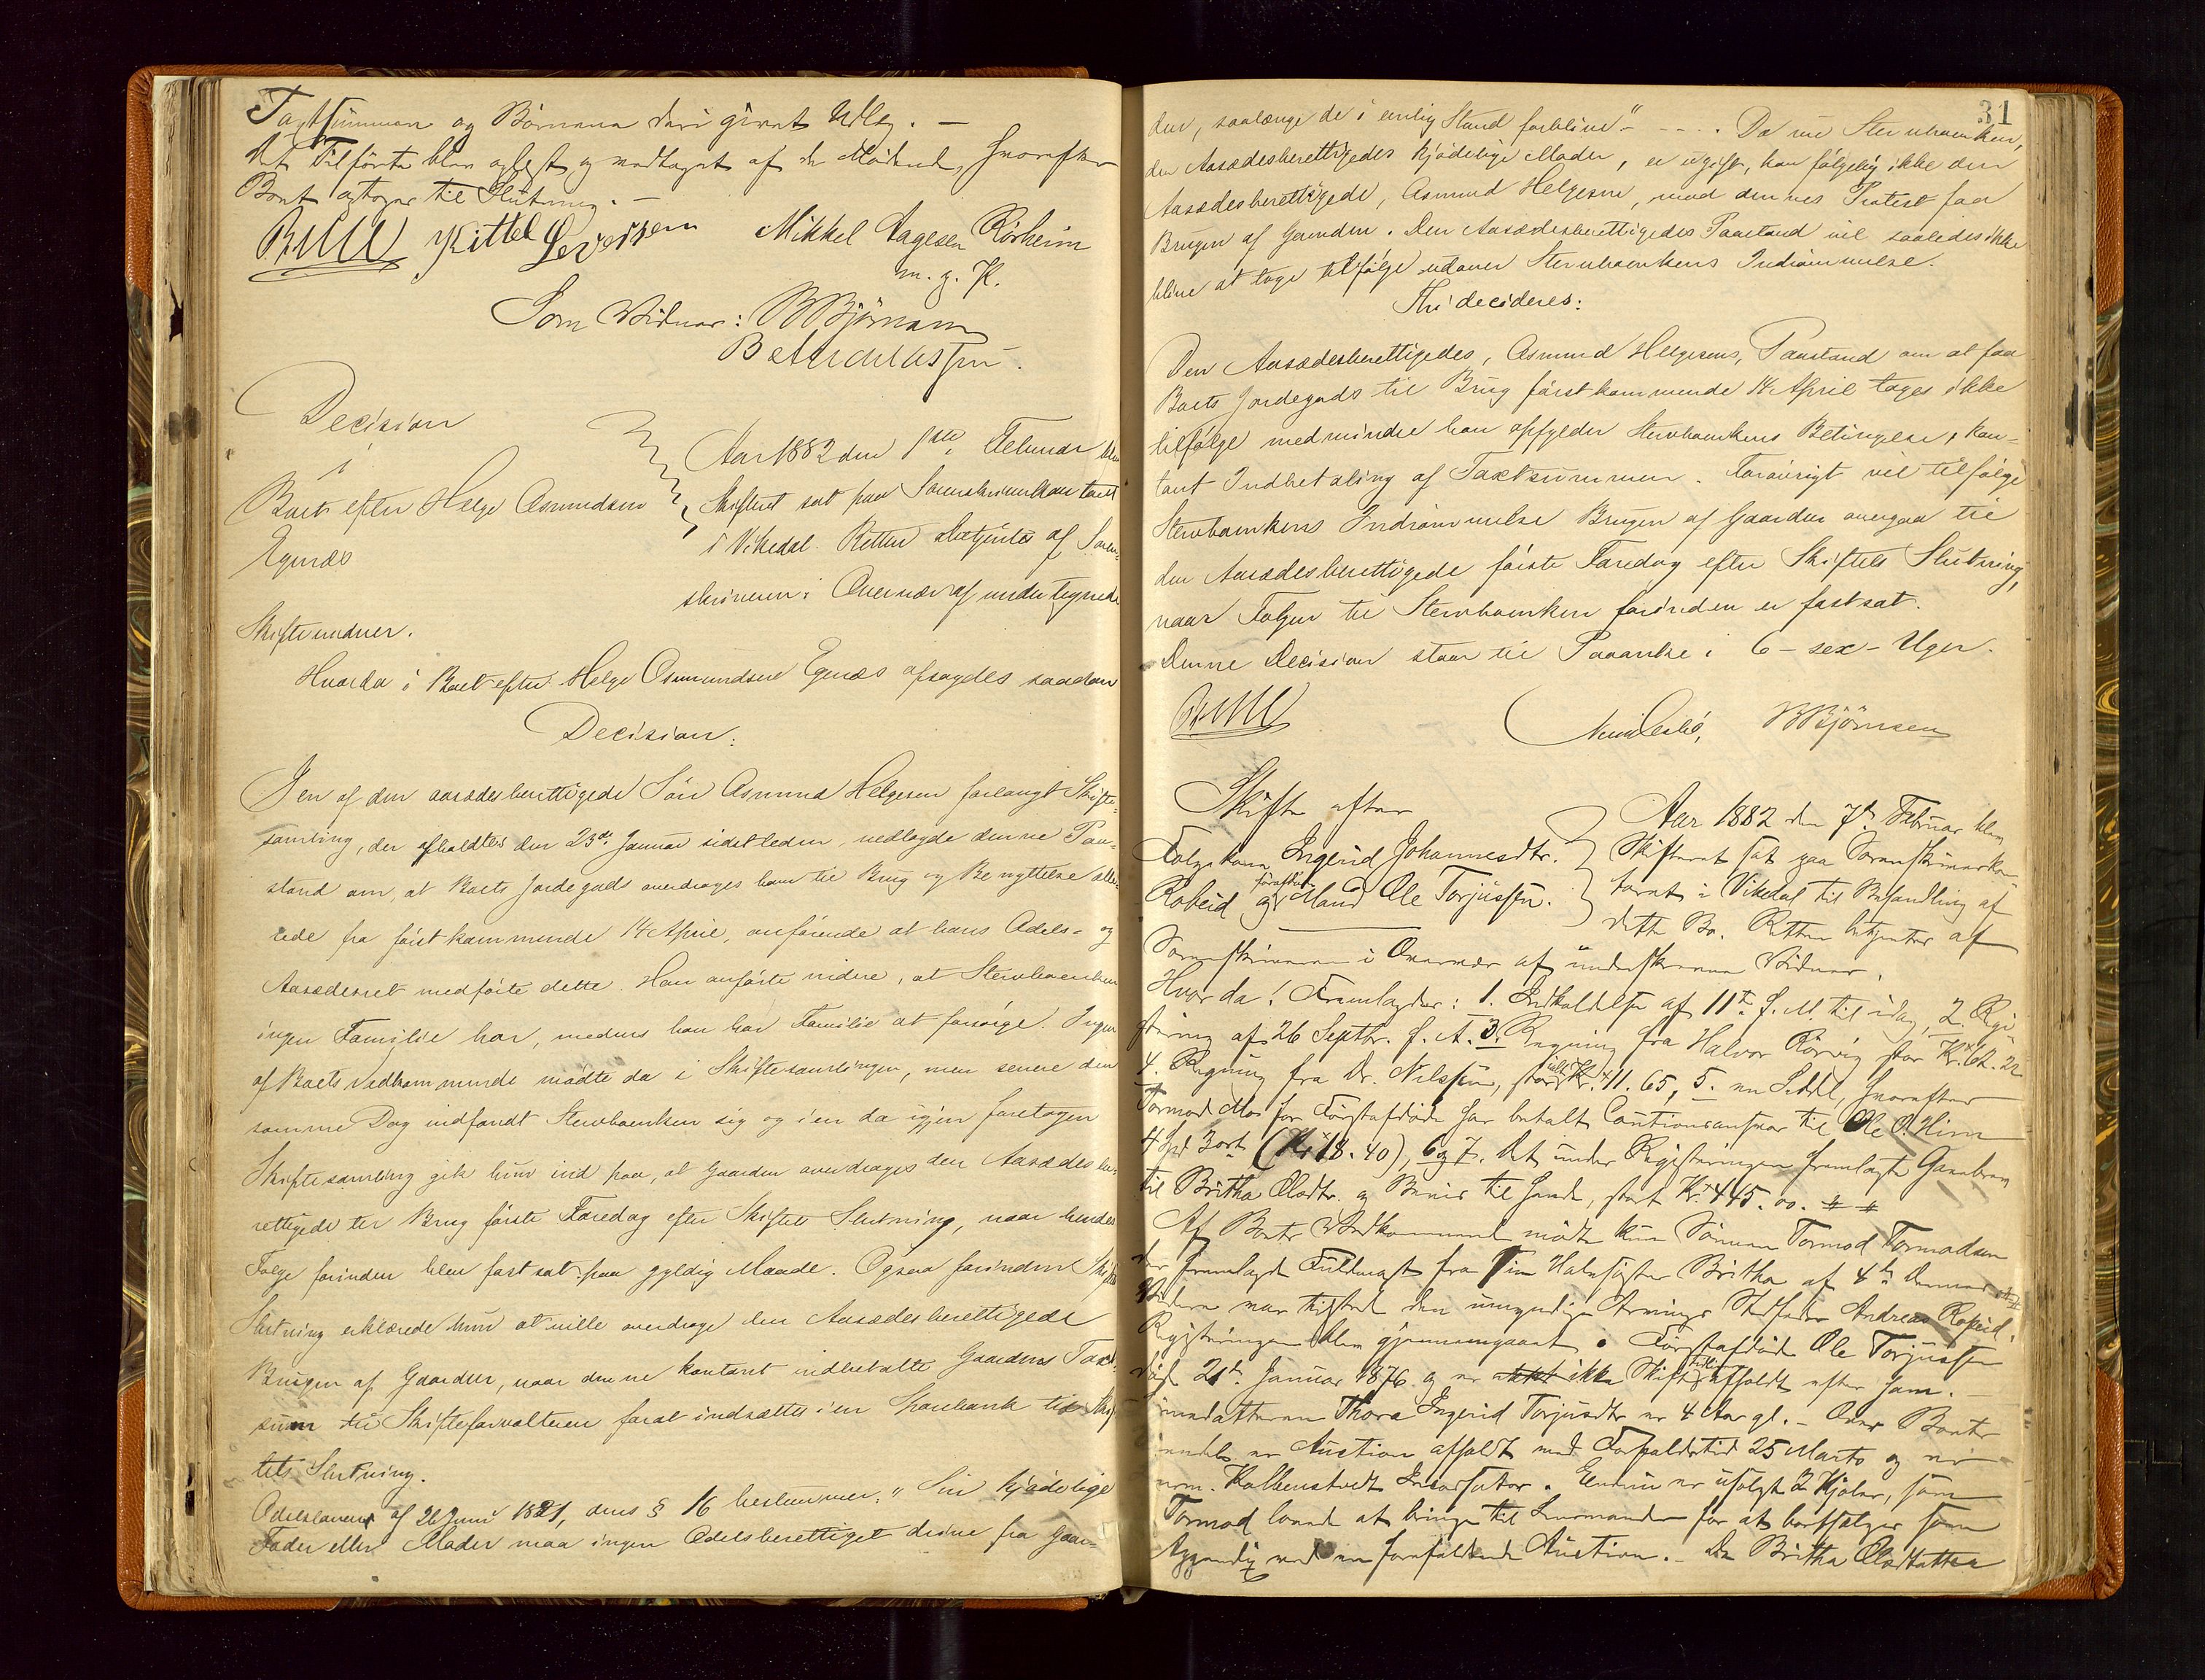 Taxtsummen og Börnene deri givet Udlæg. —
Det Tilförte blev oplæst og vedtaget af de Mödende, hvorefter
Boet optoges til Slutning. —
Kittel Severtsen Mikkel Aagesen Rörheim
m. g. K.
Som Vidner: B Björnsen
Decision
i
Boet efter Helge Asmundsen
Egenæs
Aar 1882 den 1ste Februar blev
Skifteret sat paa Sorenskriverkontoret
i Vikedal. Retten betjentes af Soren-
skriveren i Overvær af undertegnede
Skiftevidner.
Hvorda i Boet efter Helge Osmundsen Egenæs afsagdes saadan
Decision:
I en af den aasædesberettigede Sön Asmund Helgesen forlangt Skifte-
samling, der afholdtes den 23de Januar sidstleden, nedlagde denne Paa-
stand om, at Boets Jordegods overdrages ham til Brug og Benyttelse alle-
rede fra förstkommende 14 April, anförende at hans Odels- og
Aasædesret medförte dette. Han anförte videre, at Stervboenken
ingen Familie har, medens han har Familie at forsörge. Ingen
af Boets Vedkommende mödte da i Skiftesamlingen, men senere den
samme Dag indfandt Stervboenken sig og i en da igjen foretagen
Skiftesamling gik hun ind paa, at Gaarden overdrages den Aasædesbe-
rettigede til Brug förste Faredag efter Skiftets Slutning, naar hendes
Folge forinden blev fastsat paa gyldig Maade. Ogsaa forinden Skiftets
Slutning erklærede hun at ville overdrage den Aasædesberettigede
Brugen af Gaarden, naar denne kontant indbetalte Gaardens Taxt-
sum til Skifteforvalteren for at indsættes i en Sparebank til Skif-
tets Slutning.
Odelsloven af 26 Juni 1821, dens § 16 bestemmer: "Sin kjödelige
Fader eller Moder maa ingen Odelsberettiget drive fra Gaar-
31
den, saalænge de i enlig Stand forblive" - - - . Da nu Stervboenken,
den Aasædesberettigedes kjödelige Moder, er ugift, kan fölgelig ikke den
Aasædesberettigede, Asmund Helgesen, mod dennes Protest faa
Brugen af Gaarden. Den Aasædesberettigedes Paastand vil saaledes ikke
blive at tage tilfölge udover Stervboenkens Indrömmelse.
Thi decideres:
Den Aasædesberettigedes, Asmund Helgesens, Paastand om at faa
Boets Jordegods til Brug förstkommende 14 April tages ikke
tilfölge medmindre han opfylder Stervboenkens Betingelse, kon-
tant Indbetaling af Taxtsummen. Forövrigt vil tilfölge
Stervboenkens Indrömmelse Brugen af Gaarden overgaa til
den Aasædesberettigede förste Faredag efter Skiftets Slutning,
naar Folgen til Stervboenken forinden er fastsat.
Denne Decision staar til Paaanke i 6 - sex - Uger.
B Björnsen
Skifte efter
Folgekone Ingerid Johannesdtr.
Røkeid og förafdöde Mand Ole Torjussen.
Aar 1882 den 7de Februar blev
Skifteret sat paa Sorenskriverkon-
toret i Vikedal til Behandling af
dette Bo. Retten betjentes af
Sorenskriveren i Overvær af underskrevne Vidner.
Hvor da: Fremlagdes: 1. Indkaldelse af 11te f. M. til idag, 2 Regi-
strering af 26 Septbr. f. A. 3. Regning fra Halvor Rörvig stor Kr. 62.22
4. Regning fra Dr. Nilssen, stor ialt Kr. 41.65, 5. en Seddel, hvorefter
Tormod Mo for Förstafdöde har betalt Cautionsansvar til Ole O. Him
4 Spd 3 ort (Kr 18.40), 6 og 7. Det under Registreringen fremlagte Gavebrev
til Britha Olsdtr. og Bevis til hende, stort Kr. 445.00.
Af Boets Vedkommende mödte kun Sönnen Tormod Tormodsen
der fremlagde Fuldmagt fra sin Halvsöster Britha af 4de Dennes
Videre var tilstede den umyndige Arvings Stedfader Andreas Røkeid.
Registreringen blev gjennemgaaet. Förstafdöde Ole Torjussen
döde 21de Januar 1876 og er ikke Skifte tidligere afholdt efter ham. —
Sönnedatteren Thora Ingerid Torjusdtr er 4 Aar gl. — Over Boets
Eiendele er Auction afholdt med Forfaldstid 25 Marts og er
Kolbenstvedt Incassator. Endnu er usolgt 2 Kjoler, som
Tormod lovede at bringe til Lensmanden for at bortsælges
ved en forefaldende Auction. — Da Britha Olsdatter